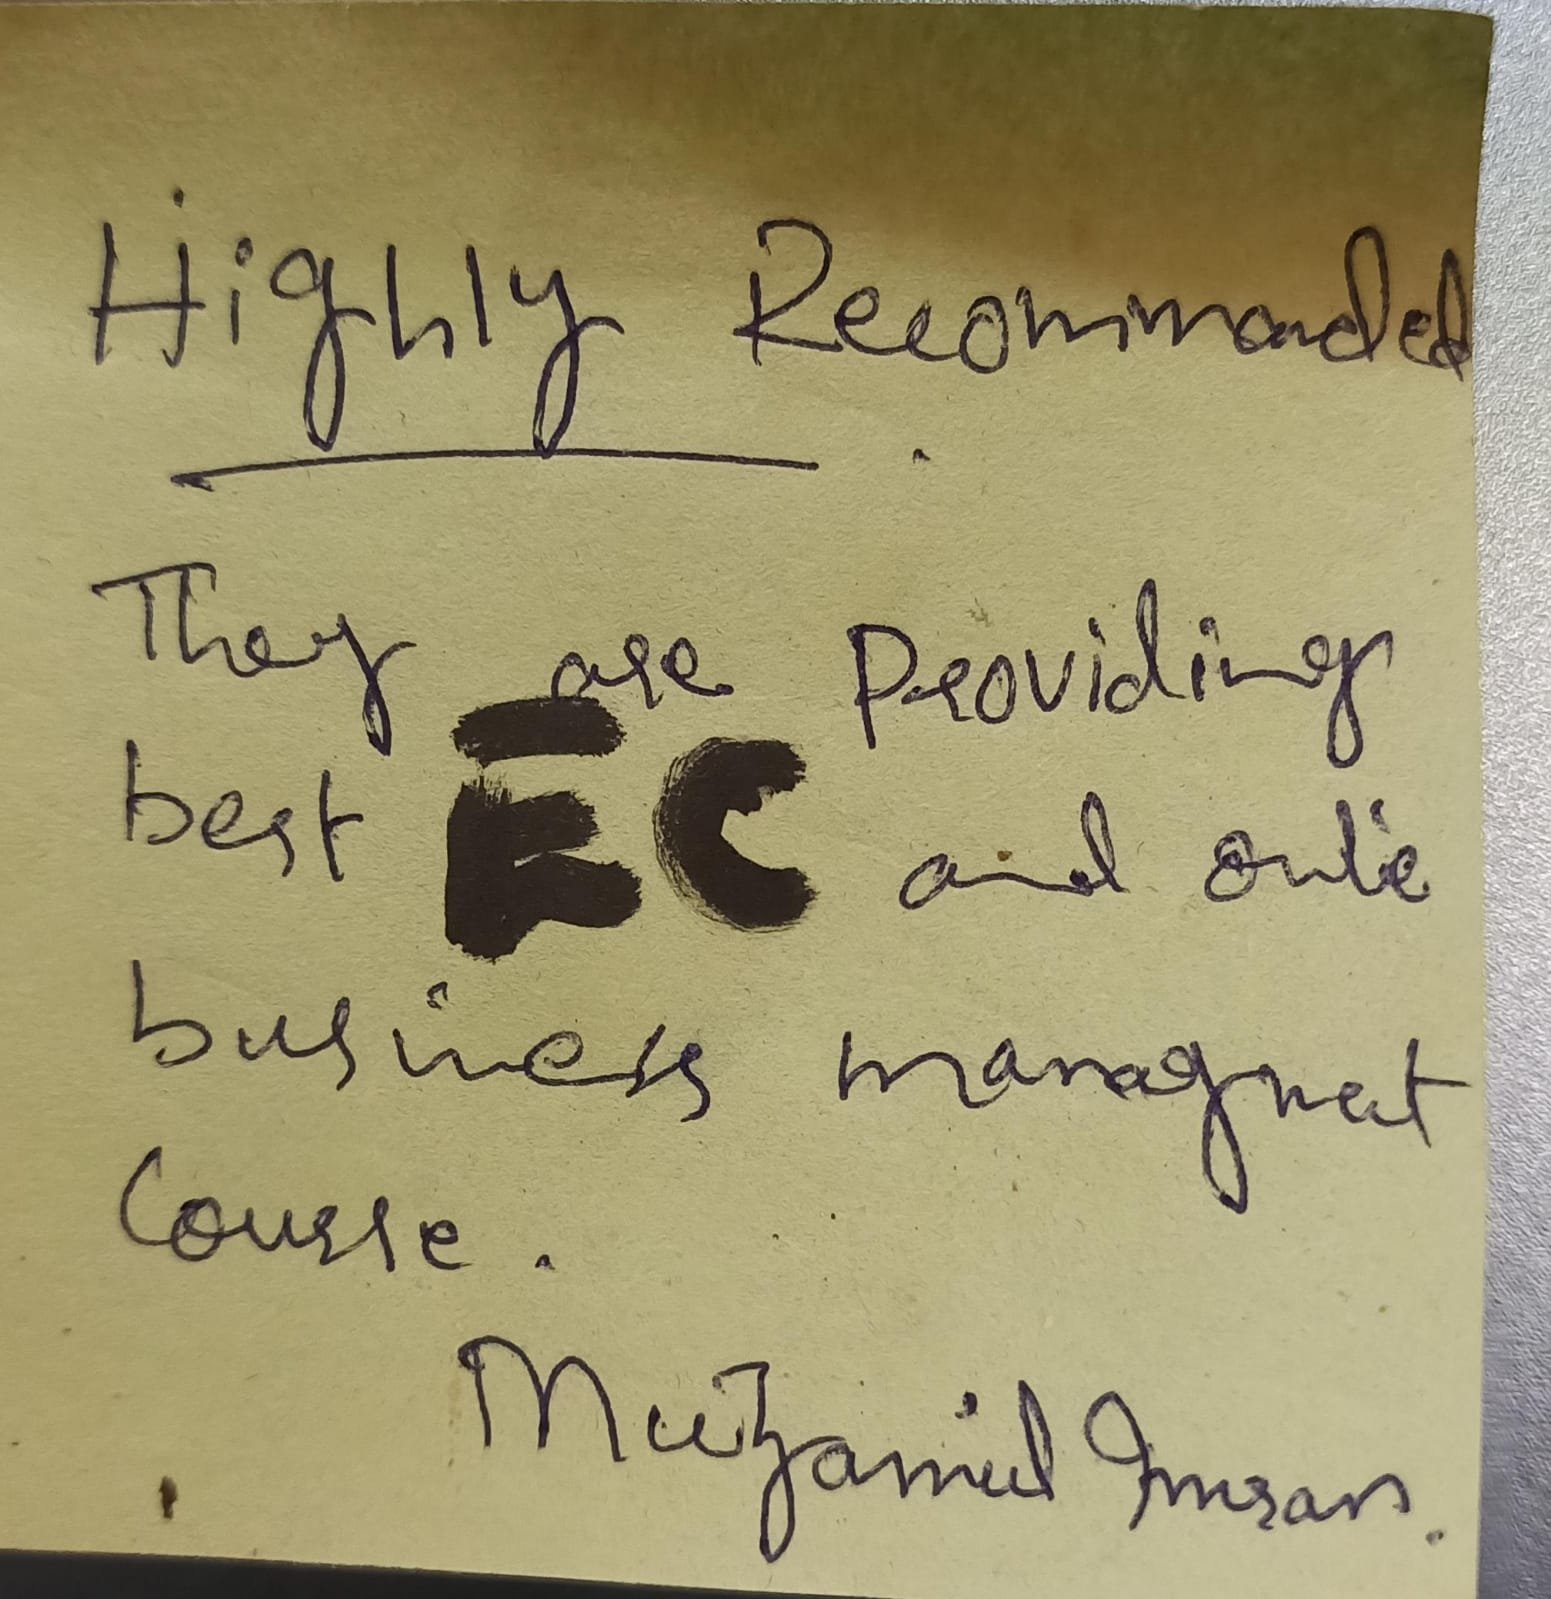 Highly Recommended
They are Providing
best EC and
business managnet
Course.
Muzamil Imran.